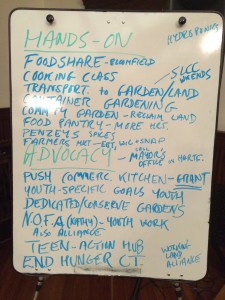 HANDS-ON
HYDROPONICS
FOODSHARE - BLOOMFIELD
COOKING CLASS
SLCC
WKENDS
TRANSPORT to GARDEN/LAND
CONTAINER GARDENING
COMM'TY GARDEN - RECLAIM LAND
FOOD PANTRY - MORE HRS.
PENZEYS SPICES
FARMERS MKT - EBT, WIC + SNAP
ADVOCACY - CALL MAYOR'S OFFICE IN HARTF.
PUSH COMMERC. KITCHEN - GRANT
YOUTH-SPECIFIC GOALS YOUTH
DEDICATED/CONSERVE GARDENS
N.O.F.A - YOUTH WORK
ALSO ALLIANCE
TEEN-ACTION HUB
WORKING LAND ALLIANCE
END HUNGER CT.